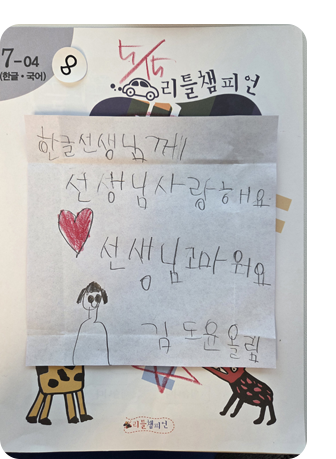 7-04
(한글·국어)
8
5/5
리틀챔피언
한글선생님께
선생님사랑해요
선생님고마워요
김도윤올림
리틀챔피언